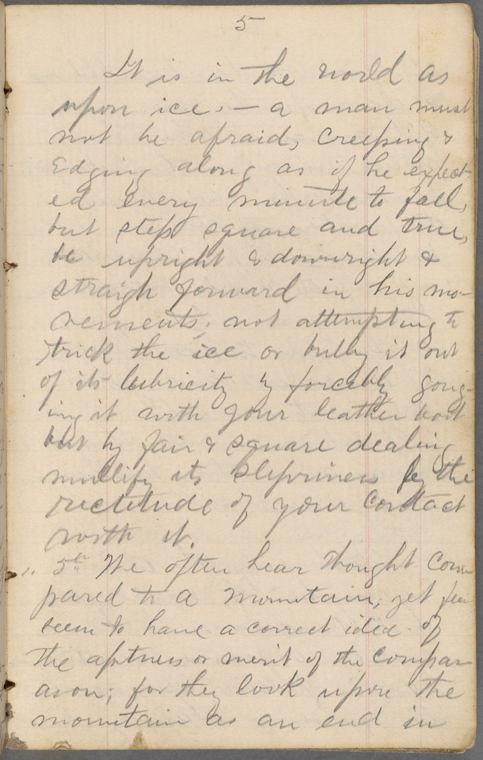 5
It is in the world as
upon ice. — a man must
not be afraid, creeping &
Edging along as if he expect-
ed every minute to fall,
but step square and true,
be upright & downright &
straigh forward in his mo-
vements, not attempting to
trick the ice or bully it out
of its lubricity by forcibly goug-
ing it with your leather boot
but by fair & square dealing
mollify its slipriness by the
rectitude of your contact
with it.
5th We often hear thought com
pared to a mountain, yet few
seem to have a correct idea of
the aptness or merit of the compar
ason; for they look upon the
mountain as an end in